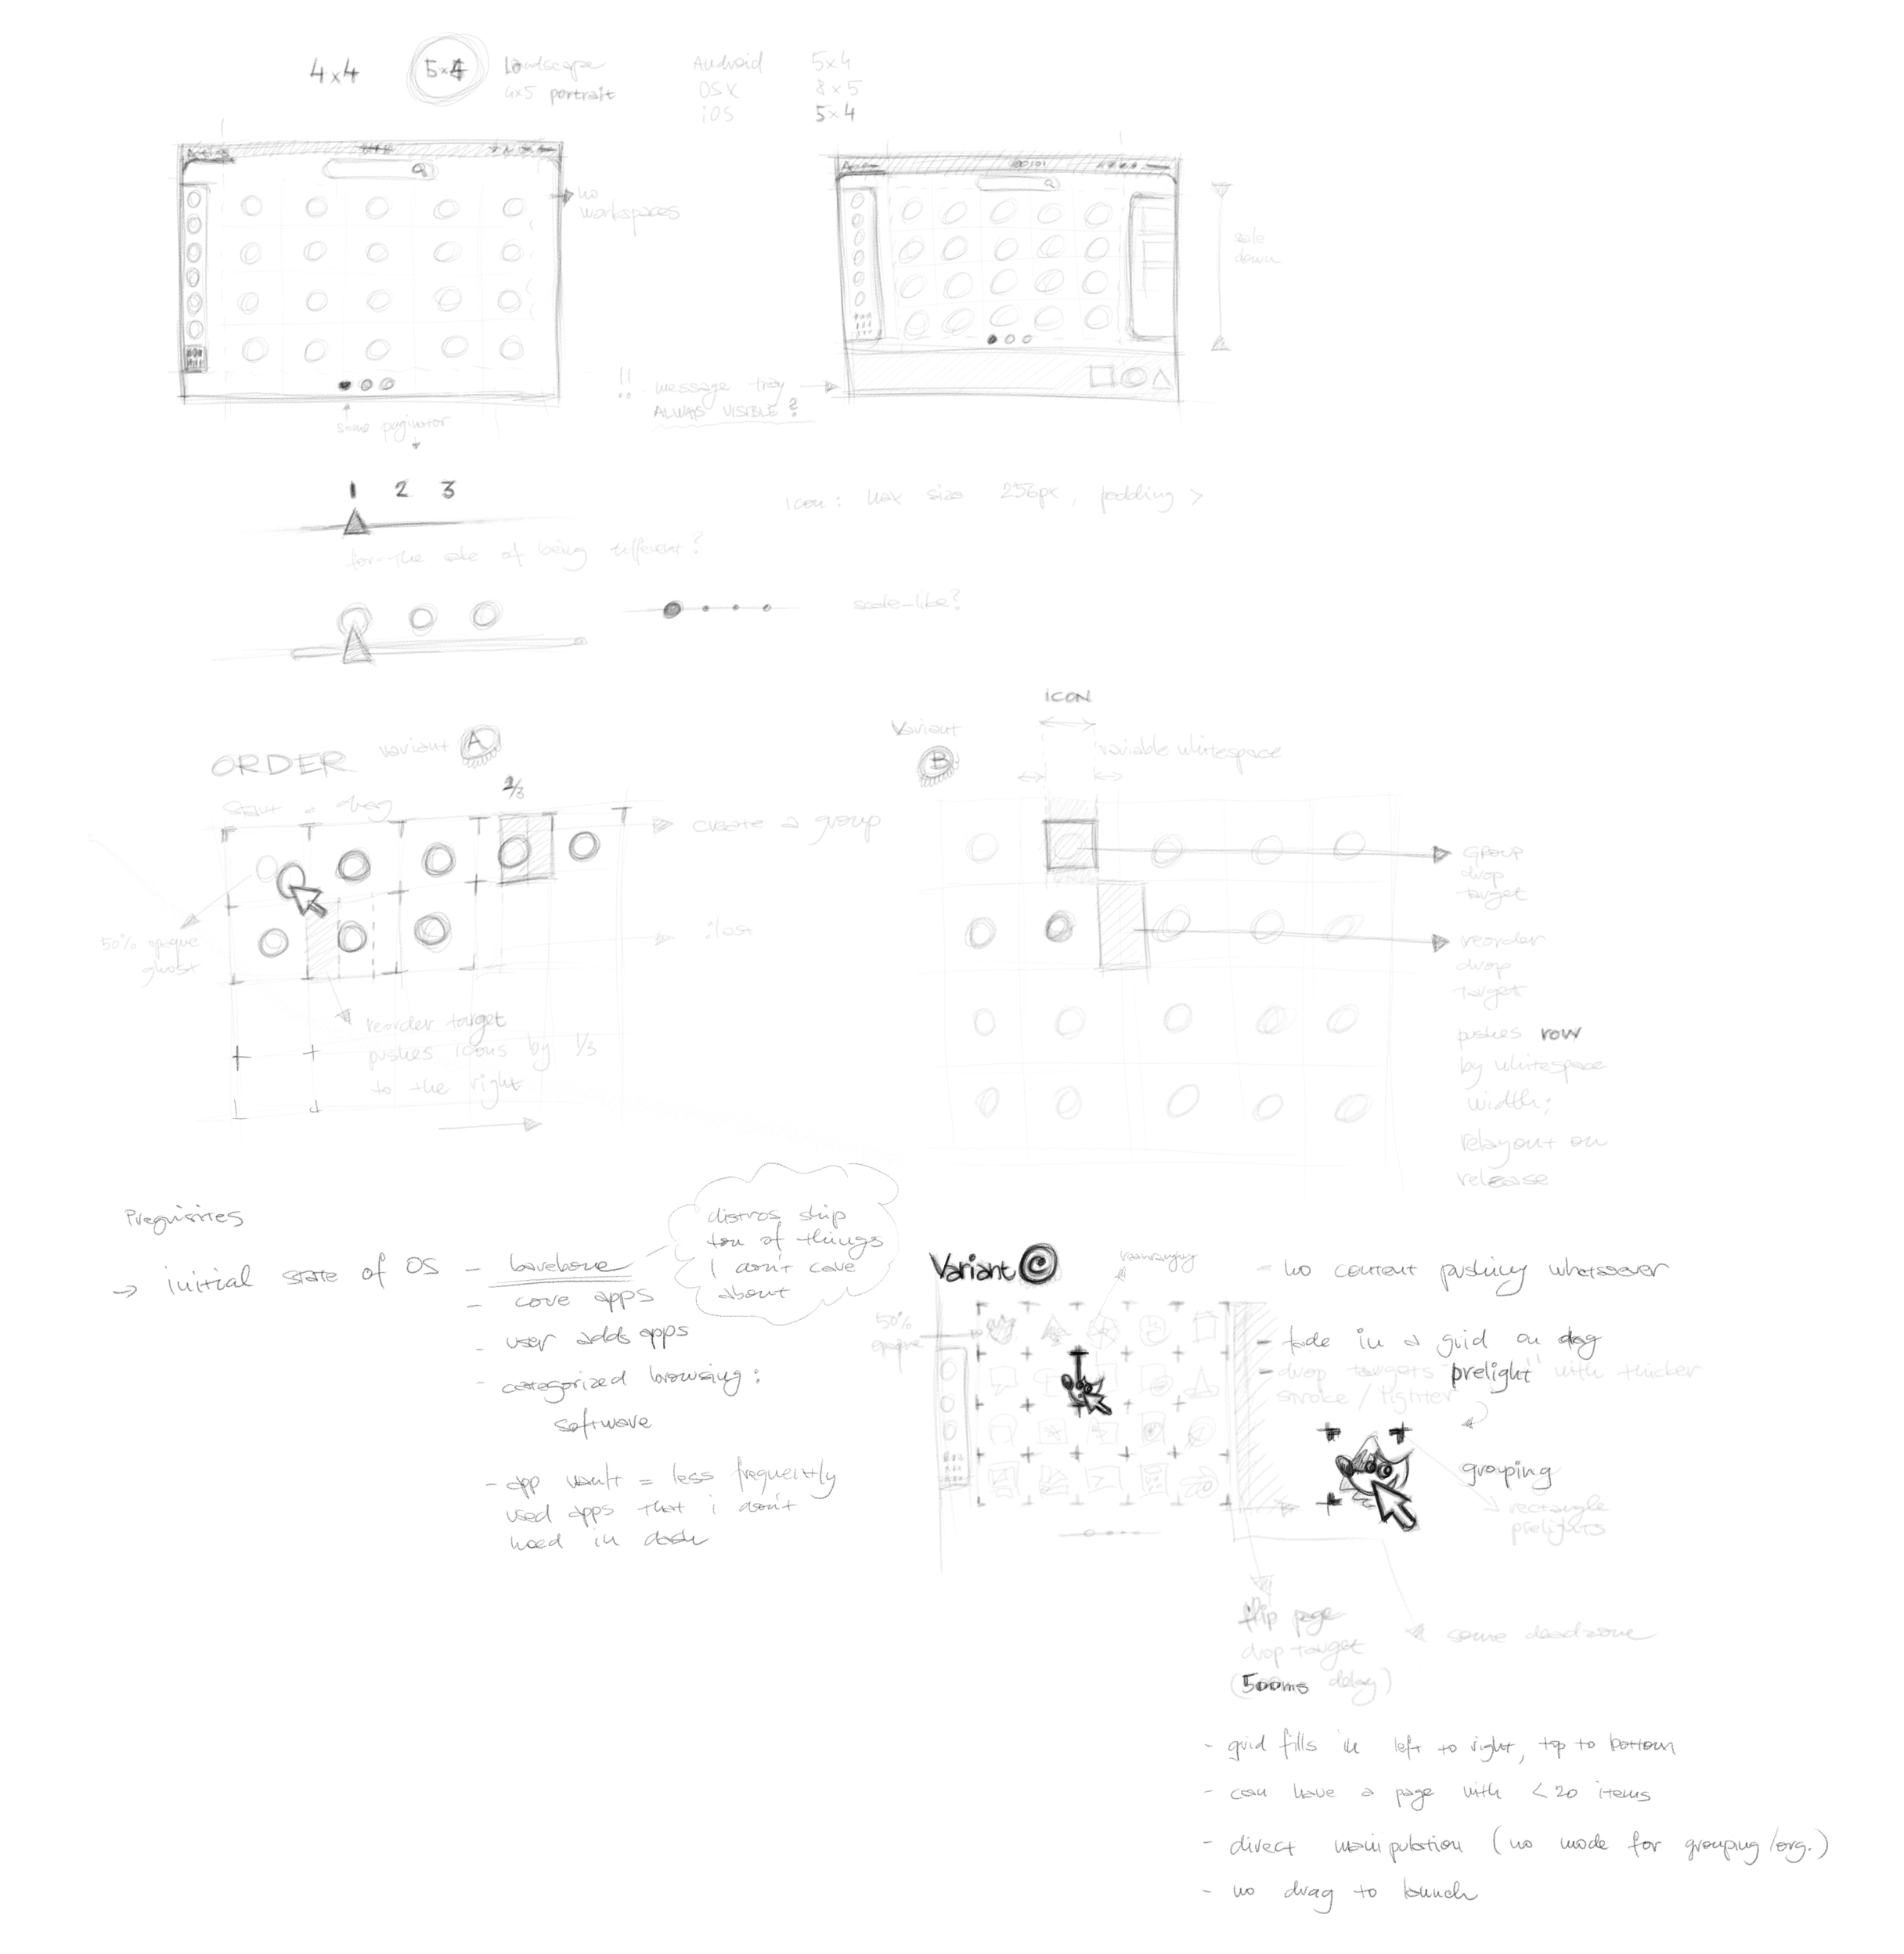 4x4
5x4
Landscape
4x5 portrait
Android 5x4
OSX 8x5
iOS 5x4
no
workspaces
scale
down
!! message tray
ALWAYS VISIBLE?
some paginator
1 2 3
icon: max size 256px, padding >
for the sake of being different?
scale-like?
ORDER
variant A
start a drag
1/3
create a group
50% opaque
ghost
:last
reorder target
pushes icons by 1/3
to the right
Variant
B
ICON
variable whitespace
group
drop
target
reorder
drop
target
pushes row
by whitespace
width;
relayout on
release
Prequisites
→ initial state of OS - barebone
- core apps
- user adds apps
- categorized browsing:
software
- app vault = less frequently
used apps that i don't
need in dash
distros ship
ton of things
I don't care
about
Variant C
rearranging
50%
opaque
- no content pushing whatsoever
- fade in a grid on drag
- drop targets "prelight" with thicker
stroke / lighter
grouping
rectangle
prelights
flip page
drop target
(500ms delay)
some deadzone
- grid fills in left to right, top to bottom
- can have a page with <20 items
- direct manipulation (no mode for grouping/org.)
- no drag to launch